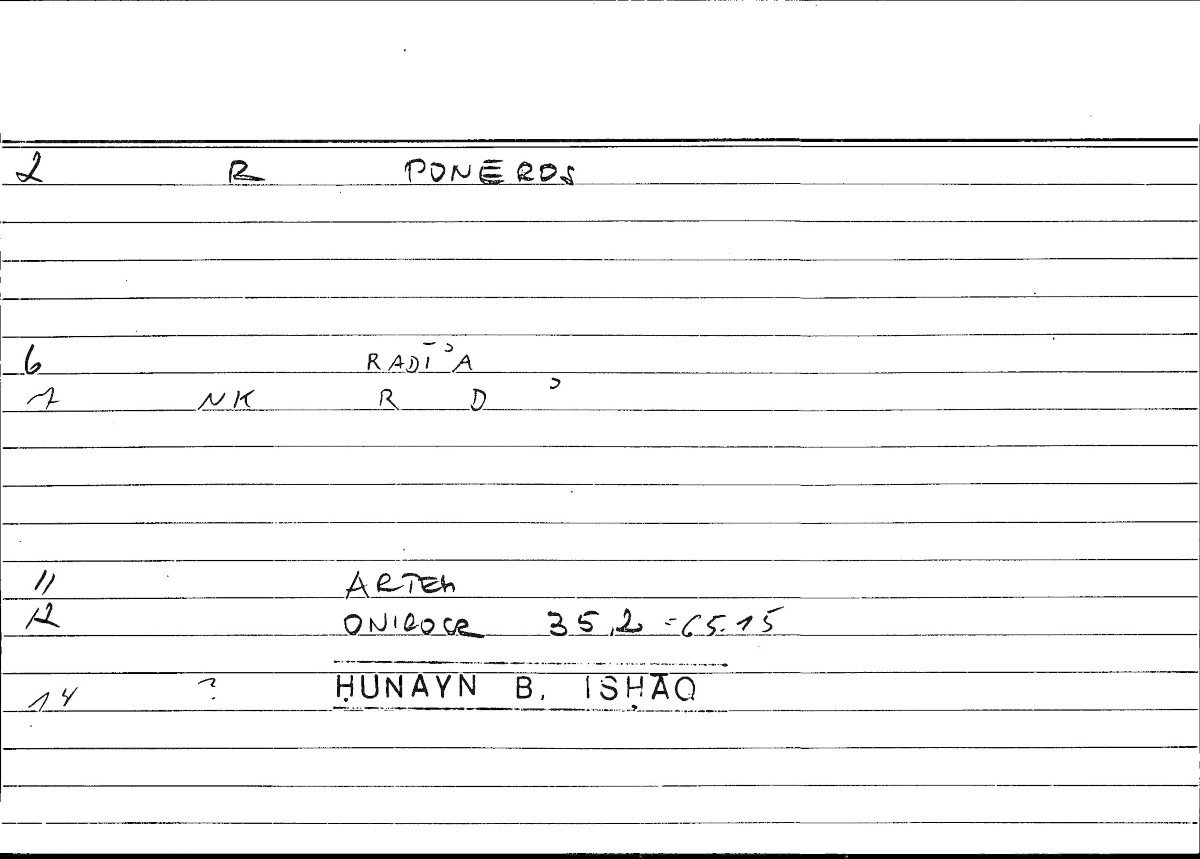 2 R PONEROS
6 RADĪʾA
7 NK R D ʾ
11 ARTEM
12 ONIROCR 35,2 = 65.15
14 ? ḤUNAYN B. ISḤĀQ